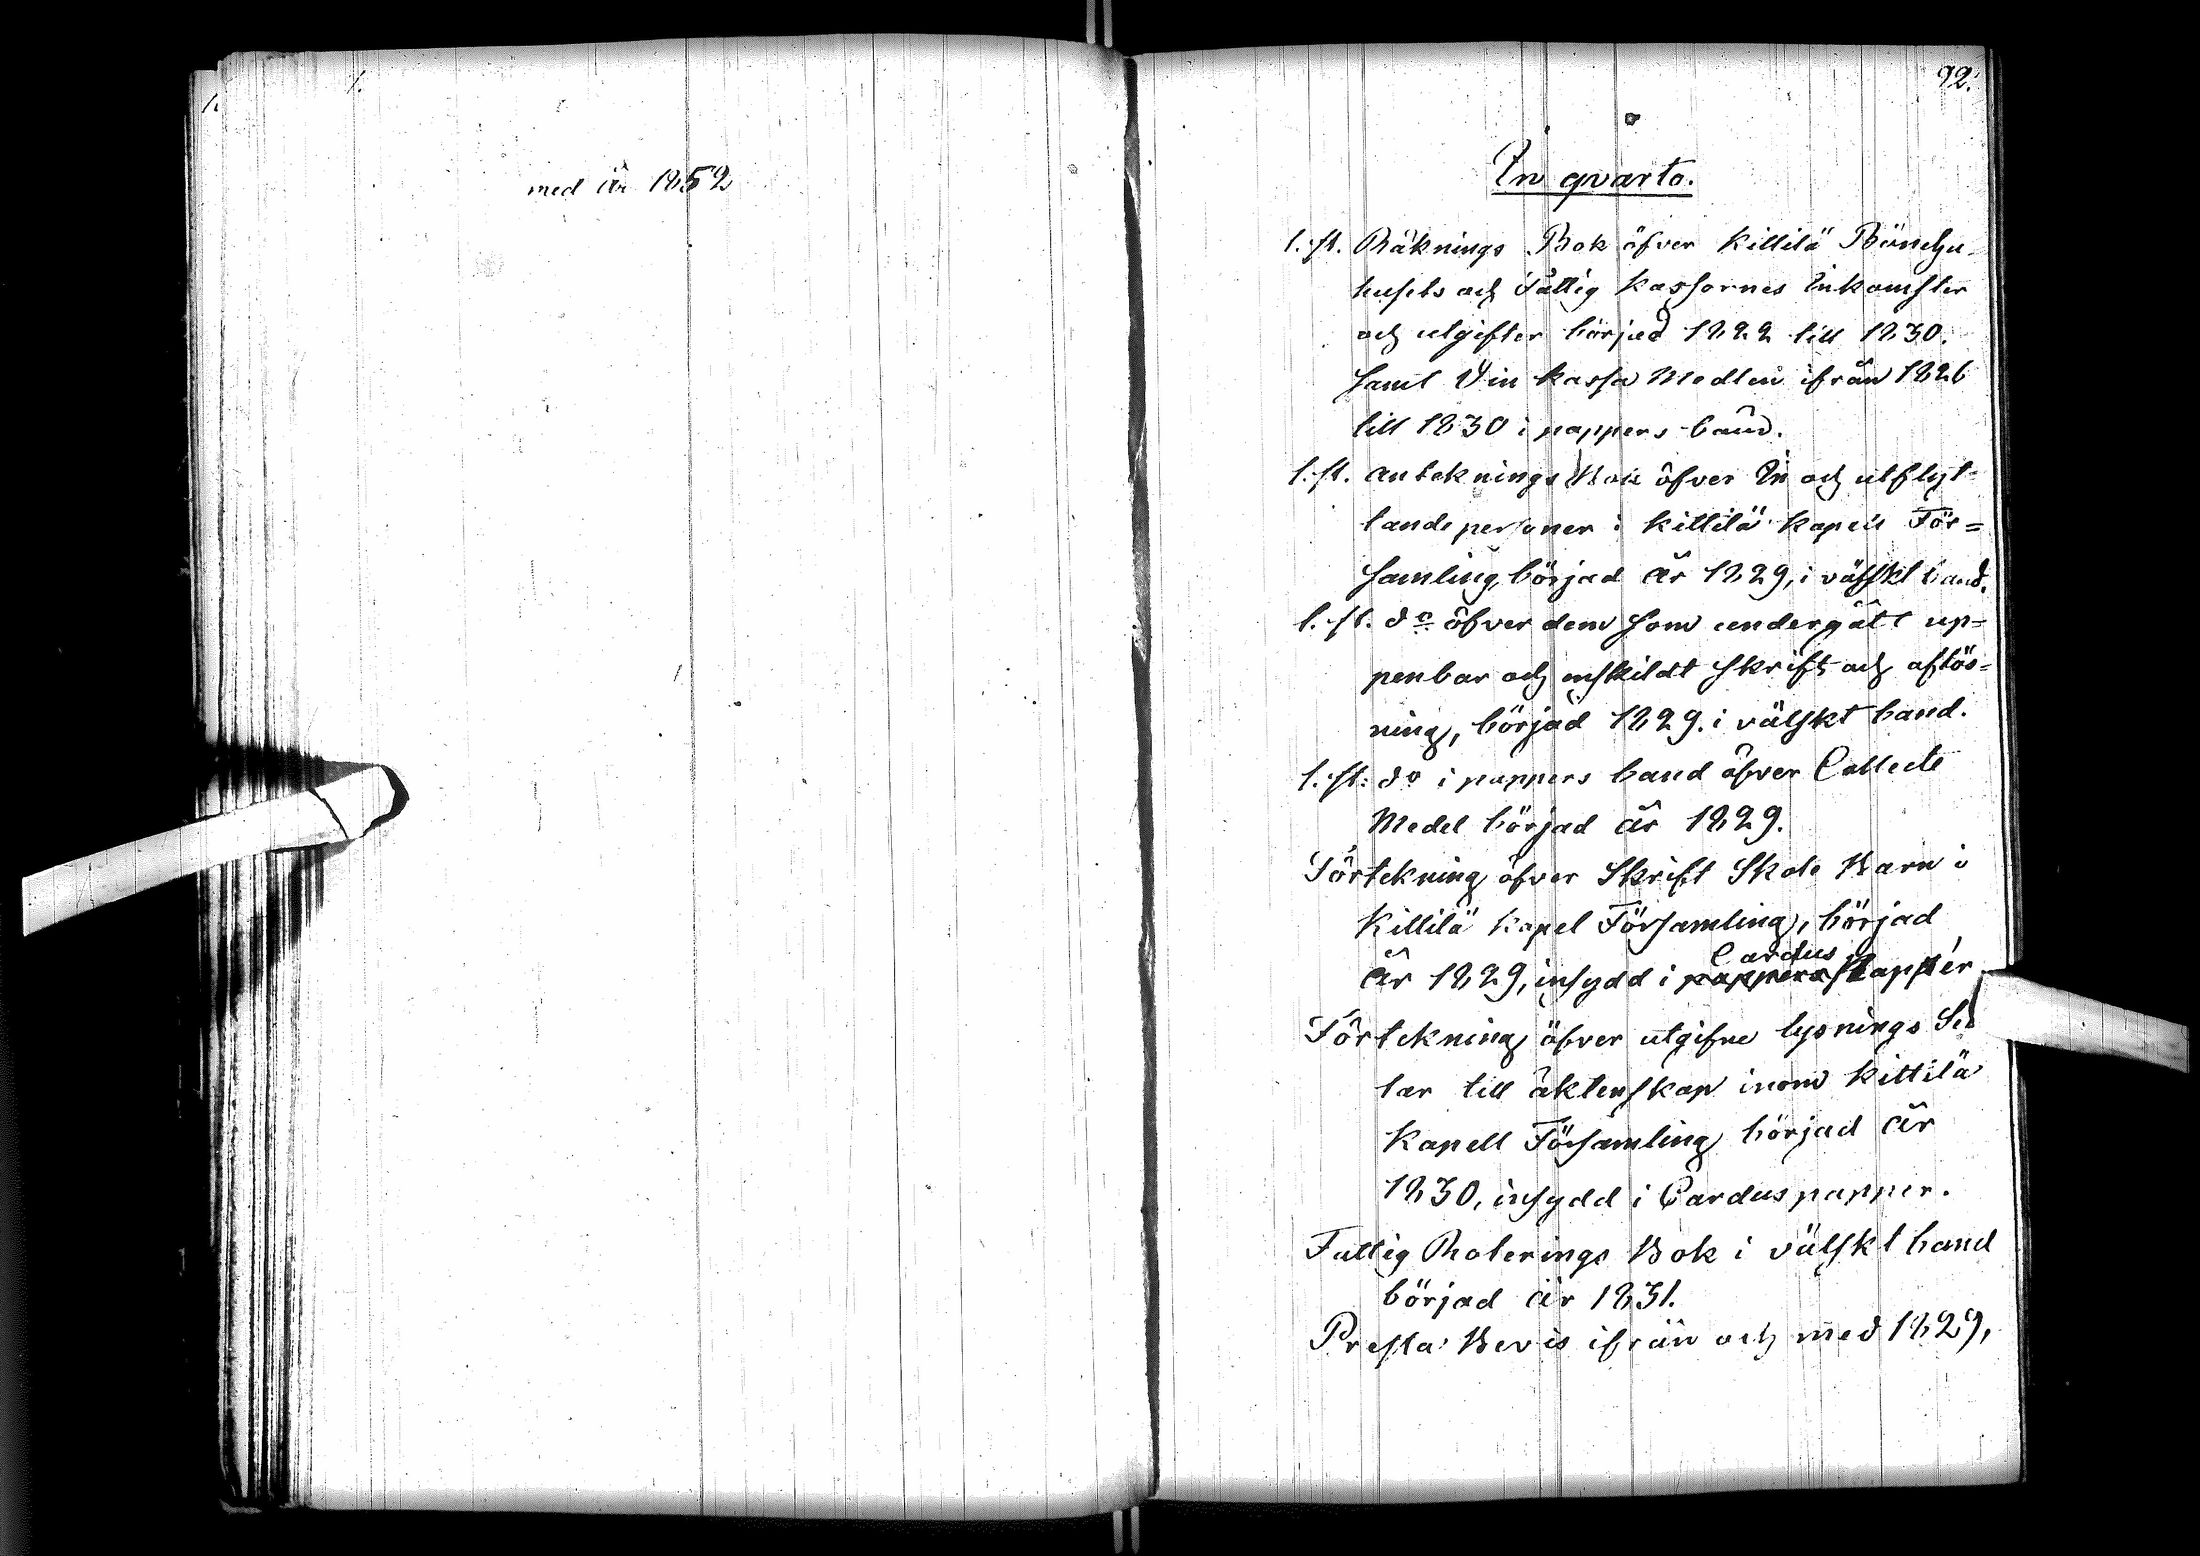 med år 1852
92.
In qvarto.
1. st. Räknings Bok öfver Kittilä Bönehu-
husets och Fattig Kassornes Inkomster
och utgifter börjad 1822 till 1830.
samt Vin kassa Medlen ifrån 1826
till 1830 i pappers band.
1. st. Anteknings Bok öfver In och utflyt-
tande personer i Kittilä Kapell För=
samling, börjad år 1829, i välskt band.
1. st. do öfver dem som undergått up=
penbar och enskildt skrift och aflös=
ning, börjad 1829. i välskt band.
1. st: do i pappers band öfver Collect
Medel börjad år 1829.
Förtekning öfver Skrift Skole Barn i
Kittilä Kapel Församling, börjad
år 1829, insydd i Cardus Papper
Förtekning öfver utgifne lysnings Sed
lar till äktenskap inom Kittilä
Kapell Församling börjad år
1830, insydd i Carduspapper.
Fattig Roterings Bok i välskt band
börjad år 1831.
Presta Bevis ifrån och med 1829,